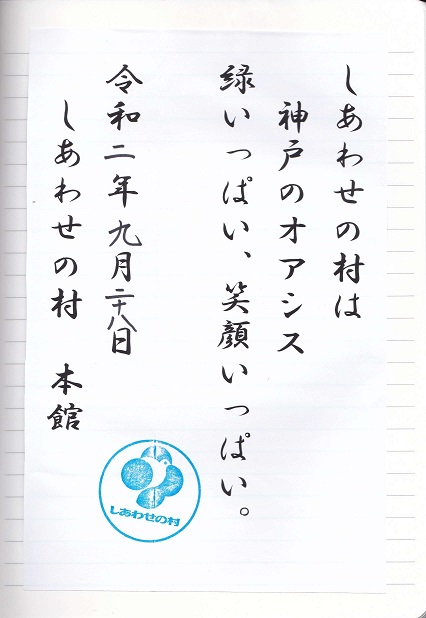 しあわせの村は
神戸のオアシス
緑いっぱい、笑顔いっぱい。
令和二年九月二十八日
しあわせの村　本館
しあわせの村